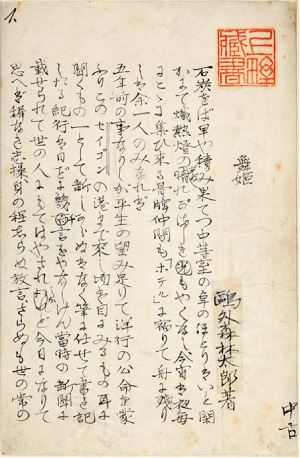 舞姫
鷗外森林太郎著
石炭をば早や積み果てつ中等室の卓のほとりハいと閑
かにて熾熱燈の晴れがましき光もやくなし今宵は夜毎
にこゝに集ひ来る骨牌仲間も「ホテル」に宿りて舟に残り
しハ余一人のみなれば
五年前の事なりしが平生の望み足りて洋行の公命を蒙
りこのセイゴンの港まで来し頃は目にみるもの耳に
聞くもの一として新しからぬはなく筆に任せて書き記
したる紀行は日ごとに幾 言をかなしけん當時の新聞に
載せられて世の人にもてはやされしかど今日になりて
思へば穉なき思想身の程志らぬ放言さらぬも世の常の